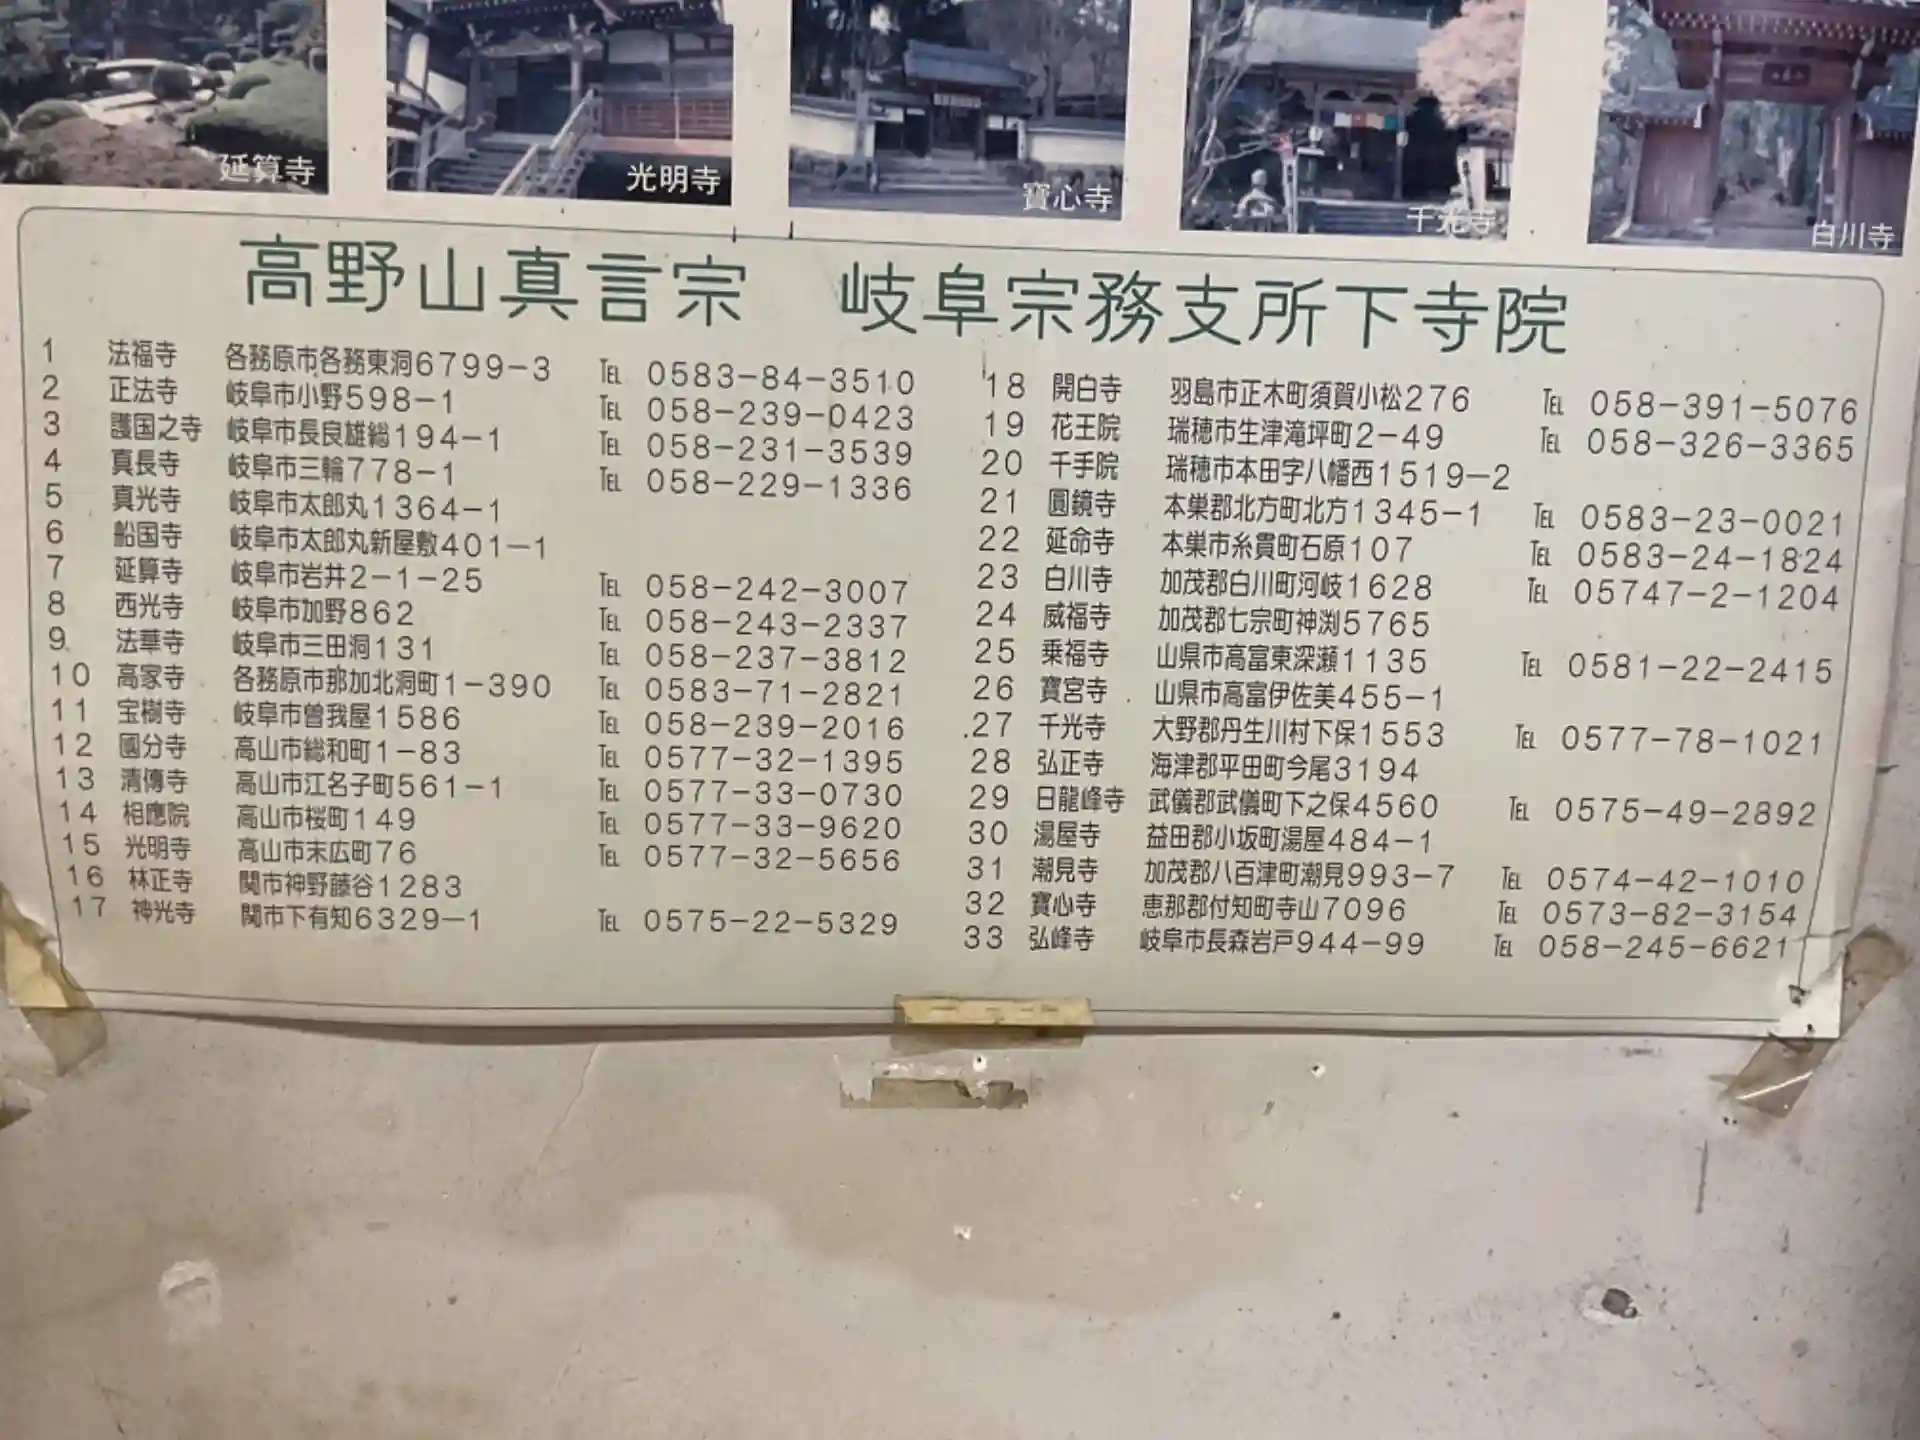 延算寺
光明寺
寶心寺
千光寺
白川寺
高野山真言宗　岐阜宗務支所下寺院
1 法福寺 各務原市各務東洞6799-3 TEL 0583-84-3510
2 正法寺 岐阜市小野598-1 TEL 058-239-0423
3 護国之寺 岐阜市長良雄総194-1 TEL 058-231-3539
4 真長寺 岐阜市三輪778-1 TEL 058-229-1336
5 真光寺 岐阜市太郎丸1364-1
6 船国寺 岐阜市太郎丸新屋敷401-1
7 延算寺 岐阜市岩井2-1-25 TEL 058-242-3007
8 西光寺 岐阜市加野862 TEL 058-243-2337
9 法華寺 岐阜市三田洞131 TEL 058-237-3812
10 高家寺 各務原市那加北洞町1-390 TEL 0583-71-2821
11 宝樹寺 岐阜市曽我屋1586 TEL 058-239-2016
12 國分寺 高山市総和町1-83 TEL 0577-32-1395
13 清傳寺 高山市江名子町561-1 TEL 0577-33-0730
14 相應院 高山市桜町149 TEL 0577-33-9620
15 光明寺 高山市末広町76 TEL 0577-32-5656
16 林正寺 関市神野藤谷1283
17 神光寺 関市下有知6329-1 TEL 0575-22-5329
18 開白寺 羽島市正木町須賀小松276 TEL 058-391-5076
19 花王院 瑞穂市生津滝坪町2-49 TEL 058-326-3365
20 千手院 瑞穂市本田字八幡西1519-2
21 圓鏡寺 本巣郡北方町北方1345-1 TEL 0583-23-0021
22 延命寺 本巣市糸貫町石原107 TEL 0583-24-1824
23 白川寺 加茂郡白川町河岐1628 TEL 05747-2-1204
24 威福寺 加茂郡七宗町神渕5765
25 乗福寺 山県市高富東深瀬1135 TEL 0581-22-2415
26 寶宮寺 山県市高富伊佐美455-1
27 千光寺 大野郡丹生川村下保1553 TEL 0577-78-1021
28 弘正寺 海津郡平田町今尾3194
29 日龍峰寺 武儀郡武儀町下之保4560 TEL 0575-49-2892
30 湯屋寺 益田郡小坂町湯屋484-1
31 潮見寺 加茂郡八百津町潮見993-7 TEL 0574-42-1010
32 寶心寺 恵那郡付知町寺山7096 TEL 0573-82-3154
33 弘峰寺 岐阜市長森岩戸944-99 TEL 058-245-6621